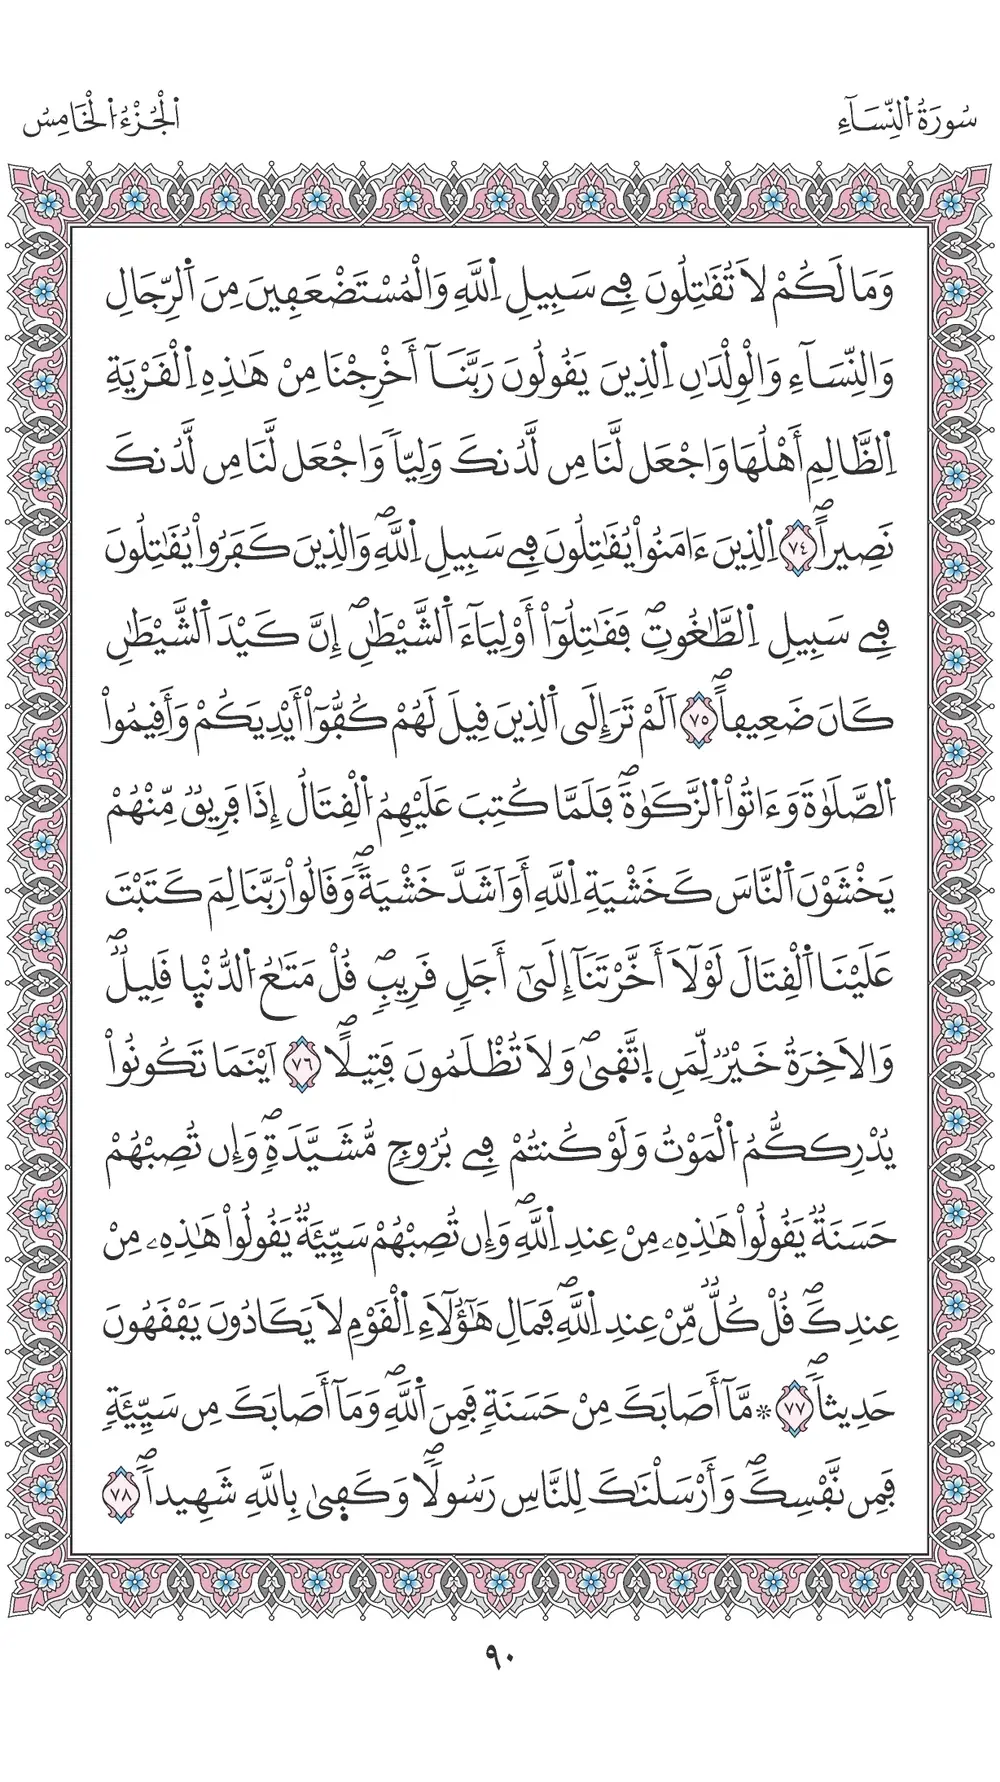 سُورَةُ اُ۬لنِّسَآءِ
اَ۬لْجُزْءُ اُ۬لْخَامِسُ
وَمَا لَكُمْ لَا تُقَٰتِلُونَ فِے سَبِيلِ اِ۬للَّهِ وَالْمُسْتَضْعَفِينَ مِنَ اَ۬لرِّجَالِ
وَالنِّسَآءِ وَالْوِلْدَٰنِ اِ۬لذِينَ يَقُولُونَ رَبَّنَآ أَخْرِجْنَا مِنْ هَٰذِهِ اِ۬لْقَرْيَةِ
اِ۬لظَّالِمِ أَهْلُهَا وَاجْعَل لَّنَا مِن لَّدُنكَ وَلِيّاٗ وَاجْعَل لَّنَا مِن لَّدُنكَ
نَصِيراًۖ ٧٤ اِ۬لذِينَ ءَامَنُواْ يُقَٰتِلُونَ فِے سَبِيلِ اِ۬للَّهِۖ وَالذِينَ كَفَرُواْ يُقَٰتِلُونَ
فِے سَبِيلِ اِ۬لطَّٰغُوتِۖ فَقَٰتِلُوٓاْ أَوْلِيَآءَ اَ۬لشَّيْطَٰنِۖ إِنَّ كَيْدَ اَ۬لشَّيْطَٰنِ
كَانَ ضَعِيفاًۖ ٧٥ اَلَمْ تَرَ إِلَى اَ۬لذِينَ قِيلَ لَهُمْ كُفُّوٓاْ أَيْدِيَكُمْ وَأَقِيمُواْ
اُ۬لصَّلَوٰةَ وَءَاتُواْ اُ۬لزَّكَوٰةَۖ فَلَمَّا كُتِبَ عَلَيْهِمُ اُ۬لْقِتَالُ إِذَا فَرِيقٞ مِّنْهُمْ
يَخْشَوْنَ اَ۬لنَّاسَ كَخَشْيَةِ اِ۬للَّهِ أَوَ اَشَدَّ خَشْيَةٗۖ وَقَالُواْ رَبَّنَا لِمَ كَتَبْتَ
عَلَيْنَا اَ۬لْقِتَالَ لَوْلَآ أَخَّرْتَنَآ إِلَىٰٓ أَجَلٖ قَرِيبٖۖ قُلْ مَتَٰعُ اُ۬لدُّنْي۪ا قَلِيلٞۖ
وَالَاخِرَةُ خَيْرٞ لِّمَنِ اِ۪تَّق۪ىٰۖ وَلَا تُظْلَمُونَ فَتِيلاًۖ ٧٦ اَيْنَمَا تَكُونُواْ
يُدْرِككُّمُ اُ۬لْمَوْتُ وَلَوْ كُنتُمْ فِے بُرُوجٖ مُّشَيَّدَةٖۖ وَإِن تُصِبْهُمْ
حَسَنَةٞ يَقُولُواْ هَٰذِهِۦ مِنْ عِندِ اِ۬للَّهِۖ وَإِن تُصِبْهُمْ سَيِّئَةٞ يَقُولُواْ هَٰذِهِۦ مِنْ
عِندِكَۖ قُلْ كُلّٞ مِّنْ عِندِ اِ۬للَّهِۖ فَمَالِ هَٰٓؤُلَآءِ اِ۬لْقَوْمِ لَا يَكَادُونَ يَفْقَهُونَ
حَدِيثاٗۖ ٧٧ * مَّآ أَصَابَكَ مِنْ حَسَنَةٖ فَمِنَ اَ۬للَّهِۖ وَمَآ أَصَابَكَ مِن سَيِّئَةٖ
فَمِن نَّفْسِكَۖ وَأَرْسَلْنَٰكَ لِلنَّاسِ رَسُولاٗۖ وَكَف۪ىٰ بِاللَّهِ شَهِيداٗۖ ٧٨
٩٠